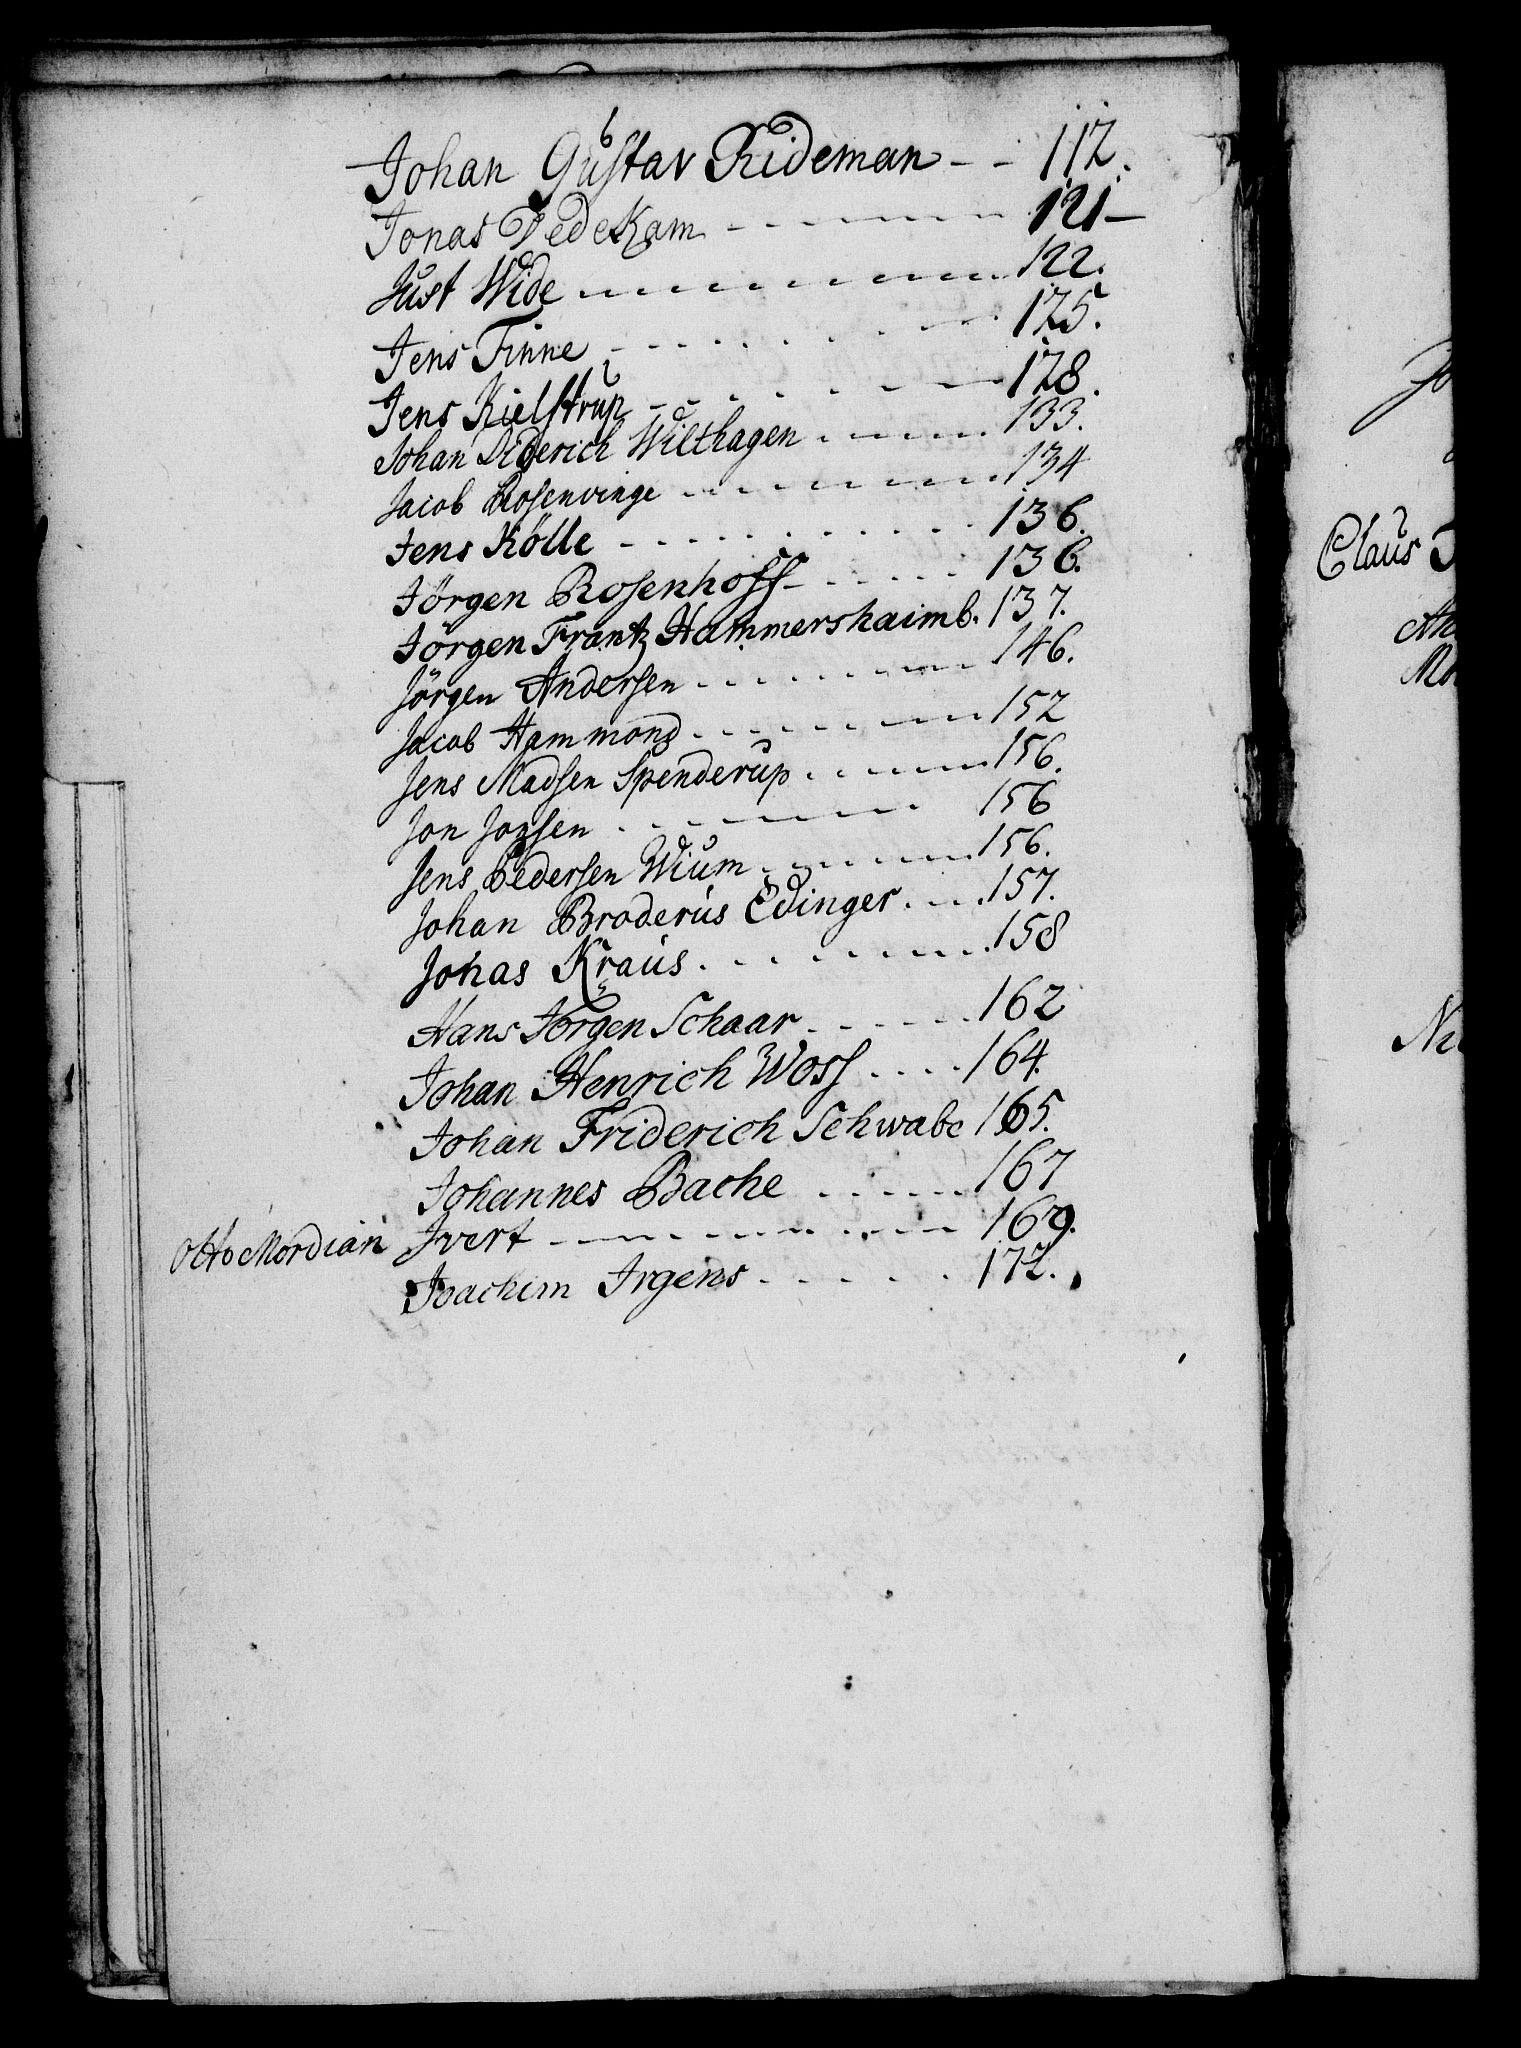 Johan Gustav Rideman - - 112.
Jonas Dedekam - - - - - - 121 -
Just Wide - - - - - - - - 122.
Jens Finne - - - - - - - - 125.
Jens Kielstrup - - - - - - 128.
Johan Diderich Wilthagen . - - - 133.
Jacob Rosenvinge - - - - - - 134
Jens Kölle - - - - - - - - 136.
Jörgen Rosenhoff - - - - - - 136.
Jörgen Frantz Hammershaimb. 137.
Jörgen Andersen - - - - - - 146.
Jacob Hammond - - - - - - 152
Jens Madsen Spenderup . - - - - 156.
Jon Jonsen . - - - - - - 156
Jens Pedersen Wium . - - - - 156.
Johan Broderus Edinger . . . . 157.
Jonas Kraus . - - - - - - 158
Hans Jörgen Schaar - - - - - - 162
Johan Henrich Woss . . . . 164.
Johan Friderich Schwabe 165.
Johannes Bache . - - - - 167
Otto Mordian Ivert - - - - - - - - 169.
Joachim Irgens - - - - - . 172.
Claus
Ni